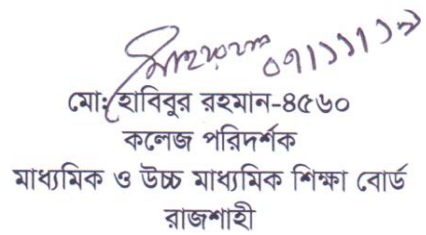 ০৭।১১।১৮
মো: হাবিবুর রহমান-৪৫৬০
কলেজ পরিদর্শক
মাধ্যমিক ও উচ্চ মাধ্যমিক শিক্ষা বোর্ড
রাজশাহী